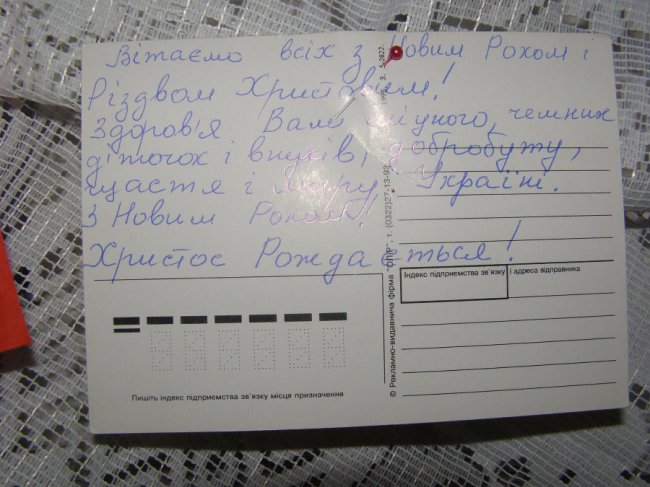 Вітаємо всіх з Новим Роком і
Різдвом Христовим!
Здоров'я Вам міцного, чемних
діточок і внуків, добробуту,
щастя і миру Україні.
З Новим Роком!
Христос Рождається!
Індекс підприємства зв'язку і адреса відправника
Пишіть індекс підприємства зв'язку місця призначення
© Рекламно-видавнича фірма "ОПР", т. (0322)27-13-92